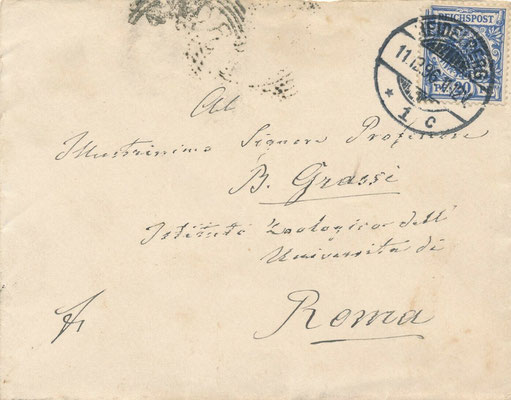 REICHSPOST
HEIDELBERG
11.12.96
20
1. c
Al
Illustrissimo Signore Professore
B. Grassi
Istituto Zoologico dell'
Universita di
Roma